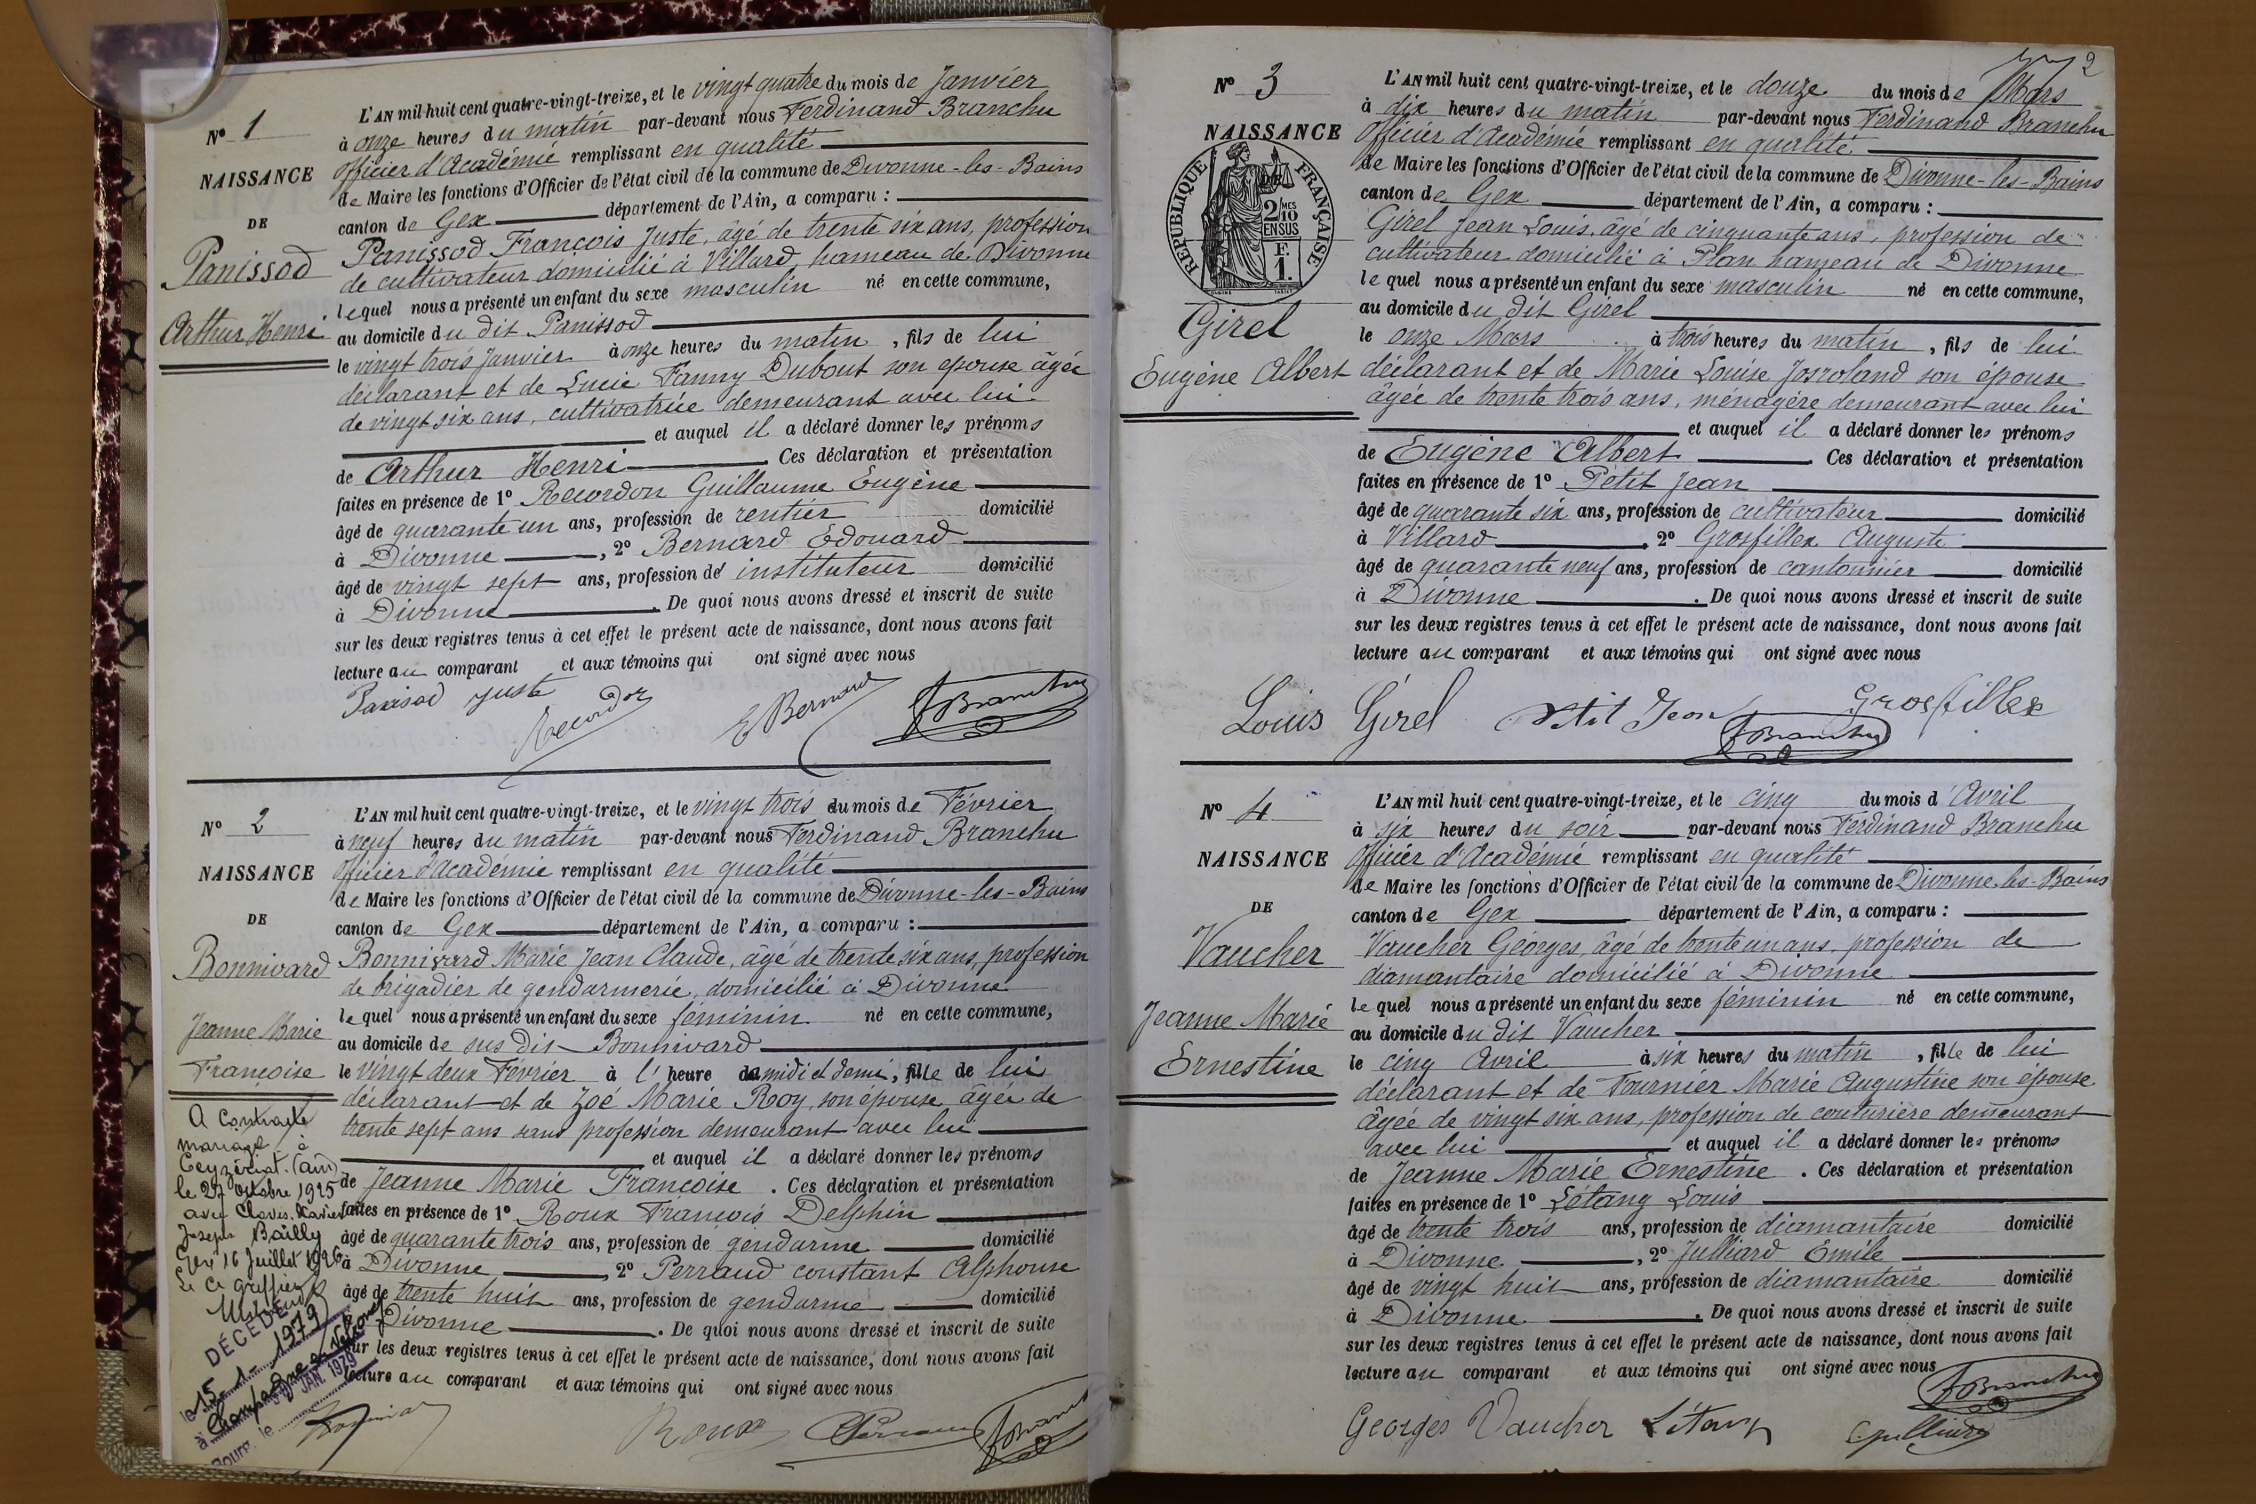 N° 1
NAISSANCE
DE
Panissod
Arthur Henri
L'AN mil huit cent quatre-vingt-treize, et le vingt quatre du mois de Janvier
à onze heures du matin par-devant nous Ferdinand Branchu
Officier d'Académie remplissant en qualité
de Maire les fonctions d'Officier de l'état civil de la commune de Divonne-les-Bains
canton de Gex département de l'Ain, a comparu :
Panissod François Juste, âgé de trente six ans, profession
de cultivateur domicilié à Villard, hameau de Divonne
lequel nous a présenté un enfant du sexe masculin né en cette commune,
au domicile du dit Panissod
le vingt trois Janvier à onze heures du matin, fils de lui
déclarant et de Lucie Fanny Dubout son épouse âgée
de vingt six ans, cultivatrice demeurant avec lui
et auquel il a déclaré donner les prénoms
de Arthur Henri Ces déclaration et présentation
faites en présence de 1° Recordon Guillaume Eugène
âgé de quarante un ans, profession de rentier domicilié
à Divonne, 2° Bernard Edouard
âgé de vingt sept ans, profession de instituteur domicilié
à Divonne. De quoi nous avons dressé et inscrit de suite
sur les deux registres tenus à cet effet le présent acte de naissance, dont nous avons fait
lecture au comparant et aux témoins qui ont signé avec nous
Panisod Juste Recordon E Bernard F Branchu
N° 2
NAISSANCE
DE
Bonnivard
Jeanne Marie
Françoise
A contracté
mariage à
Ceyzériat (ain)
le 27 octobre 1925
avec Xavier
Joseph Bailly
Gex 16 Juillet 1926
Le Ce greffier
DÉCÉDÉ
le 15-1-1979
à Champagne
JAN. 1979
Bourg, le
L'AN mil huit cent quatre-vingt-treize, et le vingt trois du mois de Février
à neuf heures du matin par-devant nous Ferdinand Branchu
Officier d'Académie remplissant en qualité
de Maire les fonctions d'Officier de l'état civil de la commune de Divonne-les-Bains
canton de Gex département de l'Ain, a comparu :
Bonnivard Marie Jean Claude, âgé de trente six ans, profession
de brigadier de gendarmerie, domicilié à Divonne
lequel nous a présenté un enfant du sexe féminin né en cette commune,
au domicile de sus dit Bonnivard
le vingt deux Février à l' heure de midi et demi, fille de lui
déclarant et de Zoé Marie Roy, son épouse âgée de
trente sept ans sans profession demeurant avec lui
et auquel il a déclaré donner les prénoms
de Jeanne Marie Françoise. Ces déclaration et présentation
faites en présence de 1° Roux François Delphin
âgé de quarante trois ans, profession de gendarme domicilié
à Divonne, 2° Perraud constant Alphonse
âgé de trente huit ans, profession de gendarme domicilié
Divonne. De quoi nous avons dressé et inscrit de suite
sur les deux registres tenus à cet effet le présent acte de naissance, dont nous avons fait
lecture au comparant et aux témoins qui ont signé avec nous
Roux Perraud F Branchu
2
N° 3
NAISSANCE
DE
RÉPUBLIQUE FRANÇAISE
2/10 MES
EN SUS
F.
1.
Girel
Eugène Albert
L'AN mil huit cent quatre-vingt-treize, et le douze du mois de Mars
à dix heures du matin par-devant nous Ferdinand Branchu
Officier d'Académie remplissant en qualité
de Maire les fonctions d'Officier de l'état civil de la commune de Divonne-les-Bains
canton de Gex département de l'Ain, a comparu :
Girel Jean Louis, âgé de cinquante ans, profession de
cultivateur domicilié à Plan hameau de Divonne
lequel nous a présenté un enfant du sexe masculin né en cette commune,
au domicile du dit Girel
le onze Mars à trois heures du matin, fils de lui
déclarant et de Marie Louise Josroland son épouse
âgée de trente trois ans, ménagère demeurant avec lui
et auquel il a déclaré donner les prénoms
de Eugène Albert Ces déclaration et présentation
faites en présence de 1° Petit Jean
âgé de quarante six ans, profession de cultivateur domicilié
à Villard, 2° Grosfillex Auguste
âgé de quarante neuf ans, profession de cantonnier domicilié
à Divonne. De quoi nous avons dressé et inscrit de suite
sur les deux registres tenus à cet effet le présent acte de naissance, dont nous avons fait
lecture au comparant et aux témoins qui ont signé avec nous
Louis Girel Petit Jean F Branchu Grosfillex
N° 4
NAISSANCE
DE
Vaucher
Jeanne Marie
Ernestine
L'AN mil huit cent quatre-vingt-treize, et le cinq du mois d'Avril
à six heures du soir par-devant nous Ferdinand Branchu
Officier d'Académie remplissant en qualité
de Maire les fonctions d'Officier de l'état civil de la commune de Divonne-les-Bains
canton de Gex département de l'Ain, a comparu :
Vaucher Georges, âgé de trente un ans, profession de
diamantaire domicilié à Divonne
lequel nous a présenté un enfant du sexe féminin né en cette commune,
au domicile du dit Vaucher
le cinq Avril à six heures du matin, fille de lui
déclarant et de Fournier Marie Augustine son épouse
âgée de vingt six ans, profession de couturière demeurant
avec lui et auquel il a déclaré donner les prénoms
de Jeanne Marie Ernestine. Ces déclaration et présentation
faites en présence de 1° Létang Louis
âgé de trente trois ans, profession de diamantaire domicilié
à Divonne, 2° Julliard Emile
âgé de vingt huit ans, profession de diamantaire domicilié
à Divonne. De quoi nous avons dressé et inscrit de suite
sur les deux registres tenus à cet effet le présent acte de naissance, dont nous avons fait
lecture au comparant et aux témoins qui ont signé avec nous
F Branchu
Georges Vaucher Létang Julliard